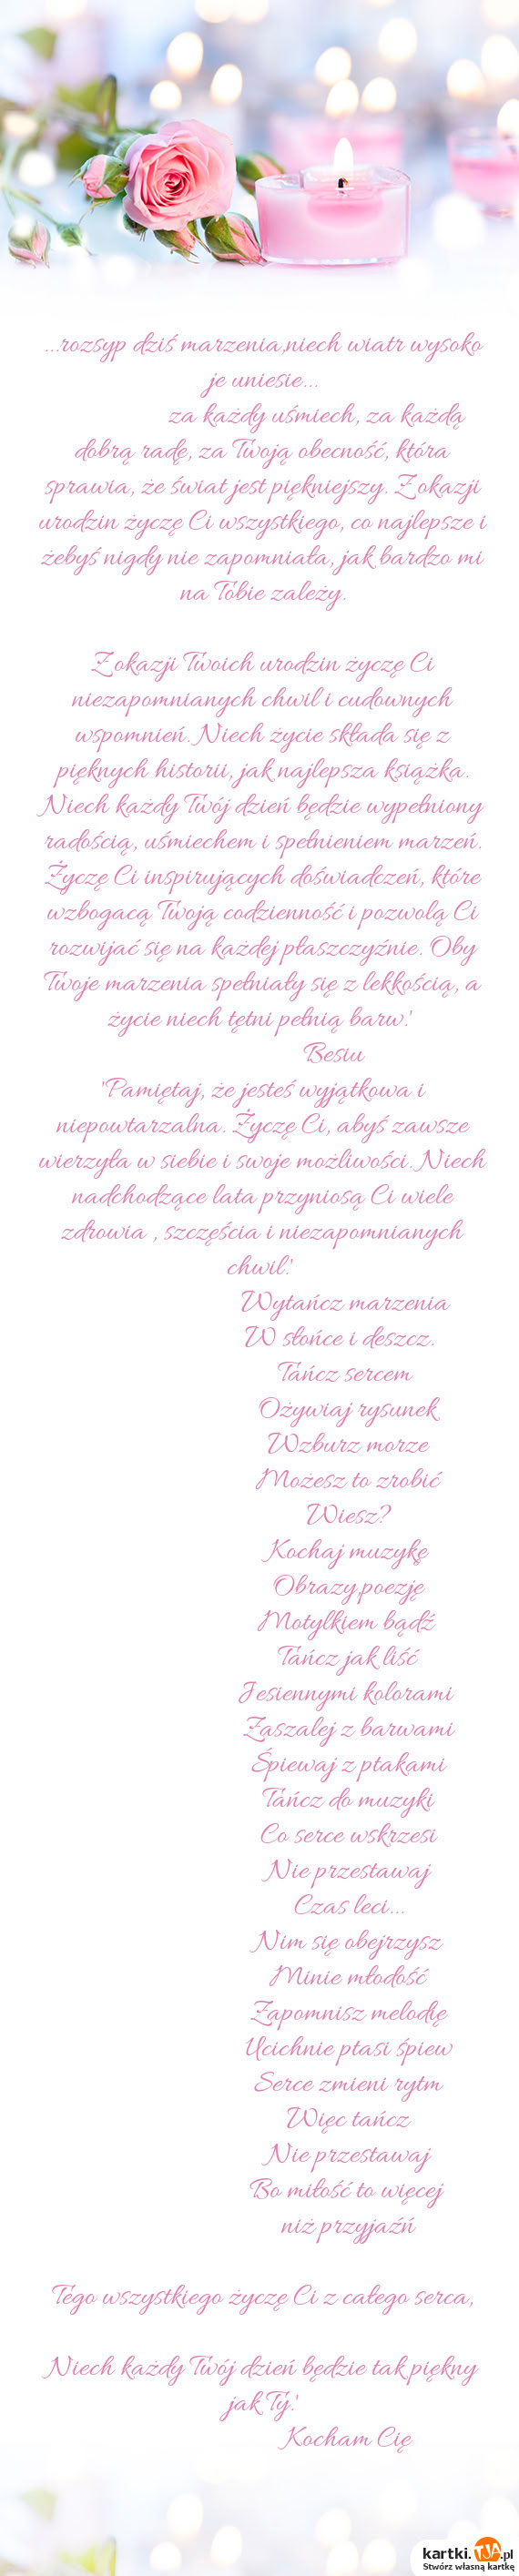 ...rozsyp dziś marzenia,niech wiatr wysoko
je uniesie...
za każdy uśmiech, za każdą
dobrą radę, za Twoją obecność, która
sprawia, że świat jest piękniejszy. Z okazji
urodzin życzę Ci wszystkiego, co najlepsze i
żebyś nigdy nie zapomniała, jak bardzo mi
na Tobie zależy.
Z okazji Twoich urodzin życzę Ci
niezapomnianych chwil i cudownych
wspomnień. Niech życie składa się z
pięknych historii, jak najlepsza książka.
Niech każdy Twój dzień będzie wypełniony
radością, uśmiechem i spełnieniem marzeń.
Życzę Ci inspirujących doświadczeń, które
wzbogacą Twoją codzienność i pozwolą Ci
rozwijać się na każdej płaszczyźnie. Oby
Twoje marzenia spełniały się z lekkością, a
życie niech tętni pełnią barw.'
Besiu
'Pamiętaj, że jesteś wyjątkowa i
niepowtarzalna. Życzę Ci, abyś zawsze
wierzyła w siebie i swoje możliwości. Niech
nadchodzące lata przyniosą Ci wiele
zdrowia , szczęścia i niezapomnianych
chwil.'
Wytańcz marzenia
W słońce i deszcz.
Tańcz sercem
Ożywiaj rysunek
Wzburz morze
Możesz to zrobić
Wiesz?
Kochaj muzykę
Obrazy,poezję
Motylkiem bądź
Tańcz jak liść
Jesiennymi kolorami
Zaszalej z barwami
Śpiewaj z ptakami
Tańcz do muzyki
Co serce wskrzesi
Nie przestawaj
Czas leci...
Nim się obejrzysz
Minie młodość
Zapomnisz melodię
Ucichnie ptasi śpiew
Serce zmieni rytm
Więc tańcz
Nie przestawaj
Bo miłość to więcej
niż przyjaźń
Tego wszystkiego życzę Ci z całego serca,
Niech każdy Twój dzień będzie tak piękny
jak Ty.'
Kocham Cię
kartki.TJA.pl
Stwórz własną kartkę